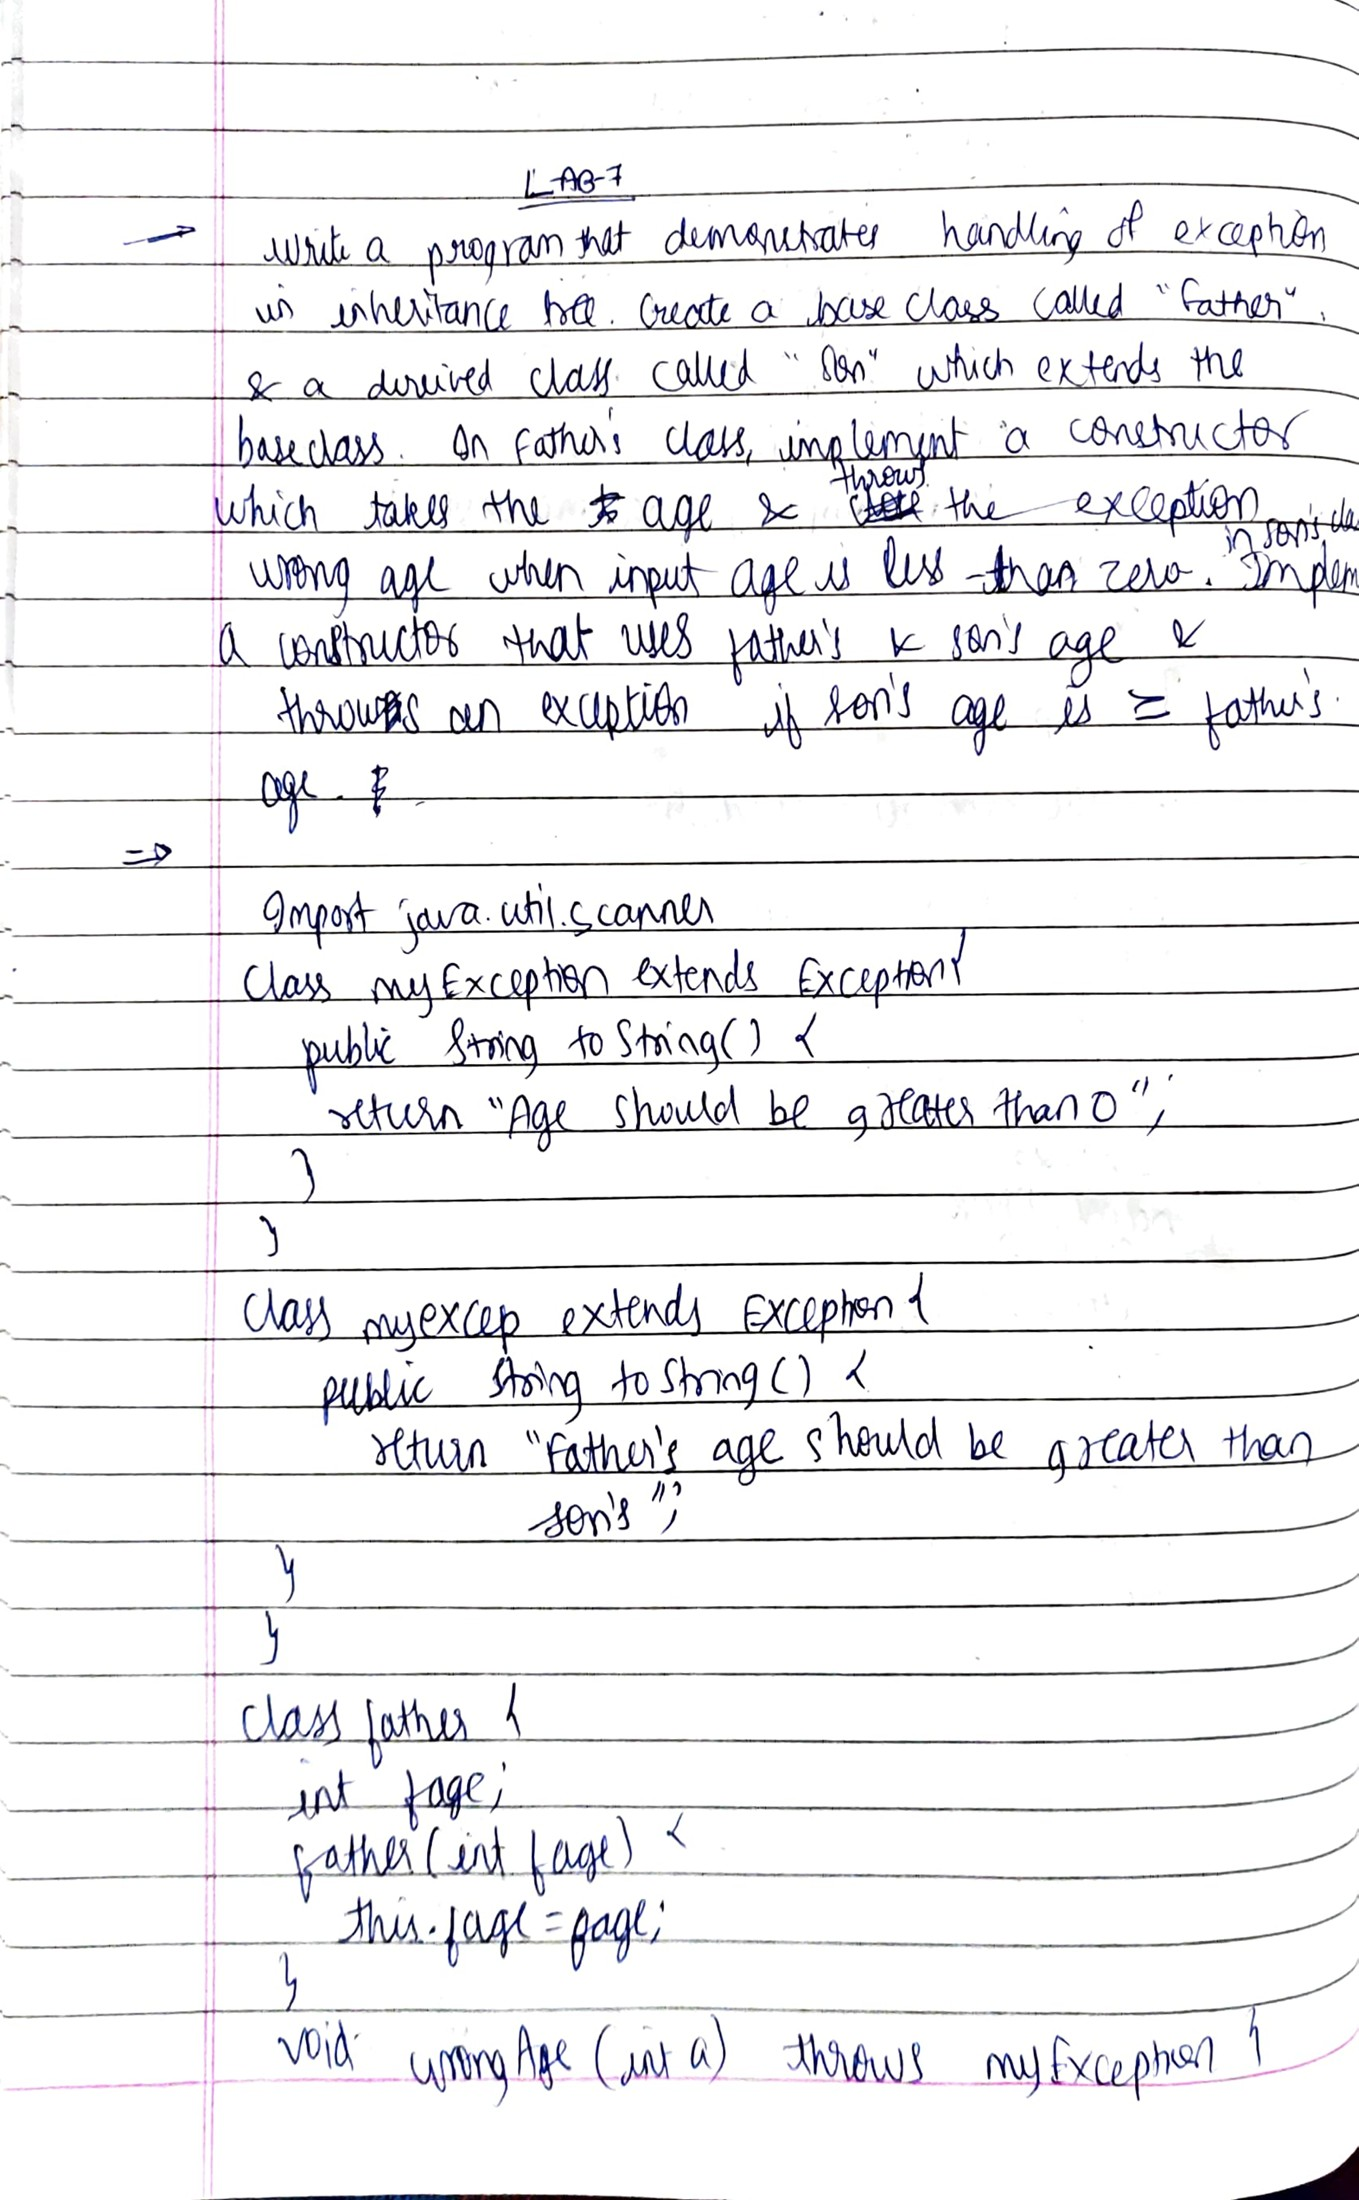 LAB-7
→ write a program that demonstrates handling of exception
in inheritance tree. Create a base class called "Father".
& a derived class called "Son" which extends the
base class. In Father's class, implement a constructor
throws
which takes the age & the exception
in son's cla
wrong age when input age is less than zero. Implem
a constructor that uses father's & son's age &
throws an exception if son's age is ≥ father's
age.
⇒
Import java.util.scanner
Class myException extends Exception{
public String toString() {
return "Age should be greater than 0";
}
}
Class myexcep extends Exception {
public String toString() {
return "Father's age should be greater than
son's";
}
}
class father {
int fage;
father(int fage) {
this.fage = fage;
}
void wrongAge (int a) throws myException {